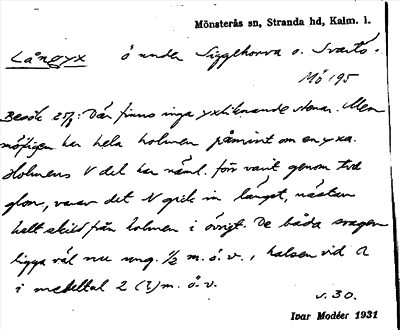 Mönsterås sn, Stranda hd, Kalm. l.
Långyx ö under Siggehorva o. Svartö.
Mö 195
Besök 25/8: Där finns inga yxliknande stenar. Men
möjligen har hela holmen påmint om en yxa.
Holmens V del har näml. förr varit genom två
glon, varav det N gick in längst, nästan
helt skild från holmen i övrigt. De båda svagen
ligga väl nu ung. 1/2 m. ö. v., halsen vid
i medeltal 2 (?) m. ö. v.
s. 30.
Ivar Modéer 1931